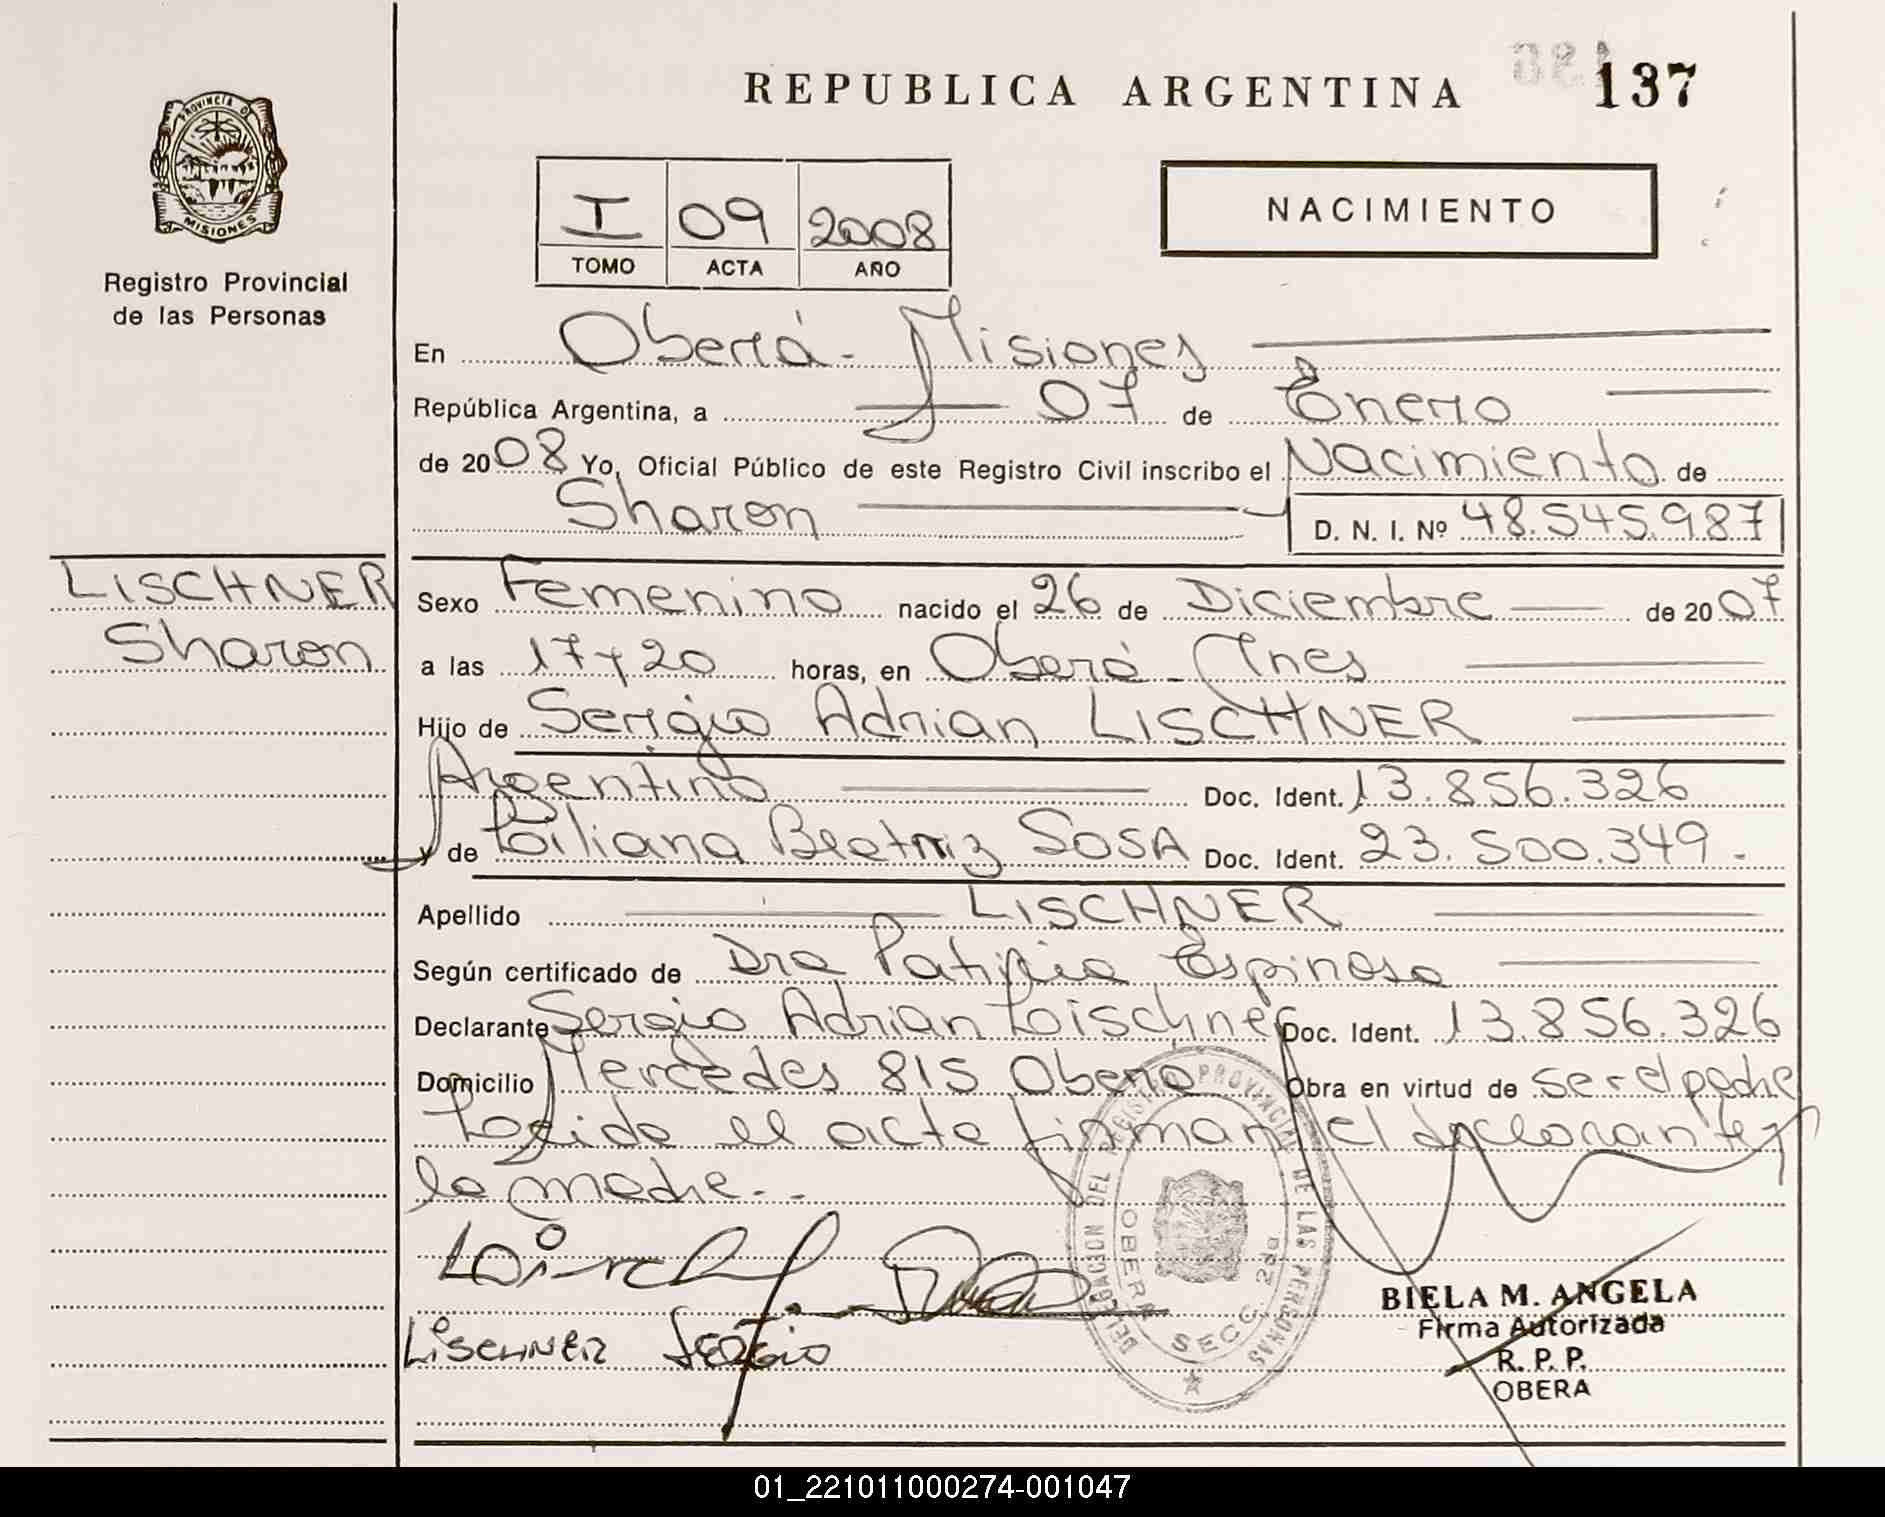 REPUBLICA ARGENTINA
137
PROVINCIA D
MISIONES
Registro Provincial
de las Personas
I 09 2008
TOMO ACTA AÑO
NACIMIENTO
En Oberá - Misiones
República Argentina, a 07 de Enero
de 2008 Yo, Oficial Público de este Registro Civil inscribo el Nacimiento de
Sharon D. N. I. Nº 48.545.987
LISCHNER
Sharon
Sexo Femenino nacido el 26 de Diciembre de 2007
a las 17 y 20 horas, en Oberá - Mnes
Hijo de Sergio Adrian LISCHNER
Argentino Doc. Ident. 13.856.326
y de Liliana Beatriz SOSA Doc. Ident. 23.500.349.-
Apellido LISCHNER
Según certificado de Dra Patricia Espinosa
Declarante Sergio Adrian Lischner Doc. Ident. 13.856.326
Domicilio Mercedes 815 Obera Obra en virtud de ser el padre
Leida el acta firman el declarante y
la madre.-
LISCHNER SERGIO
DELEGACION DEL REGISTRO PROVINCIAL DE LAS PERSONAS
OBERA SECC. 2da
BIELA M. ANGELA
Firma Autorizada
R. P. P.
OBERA
01_221011000274-001047